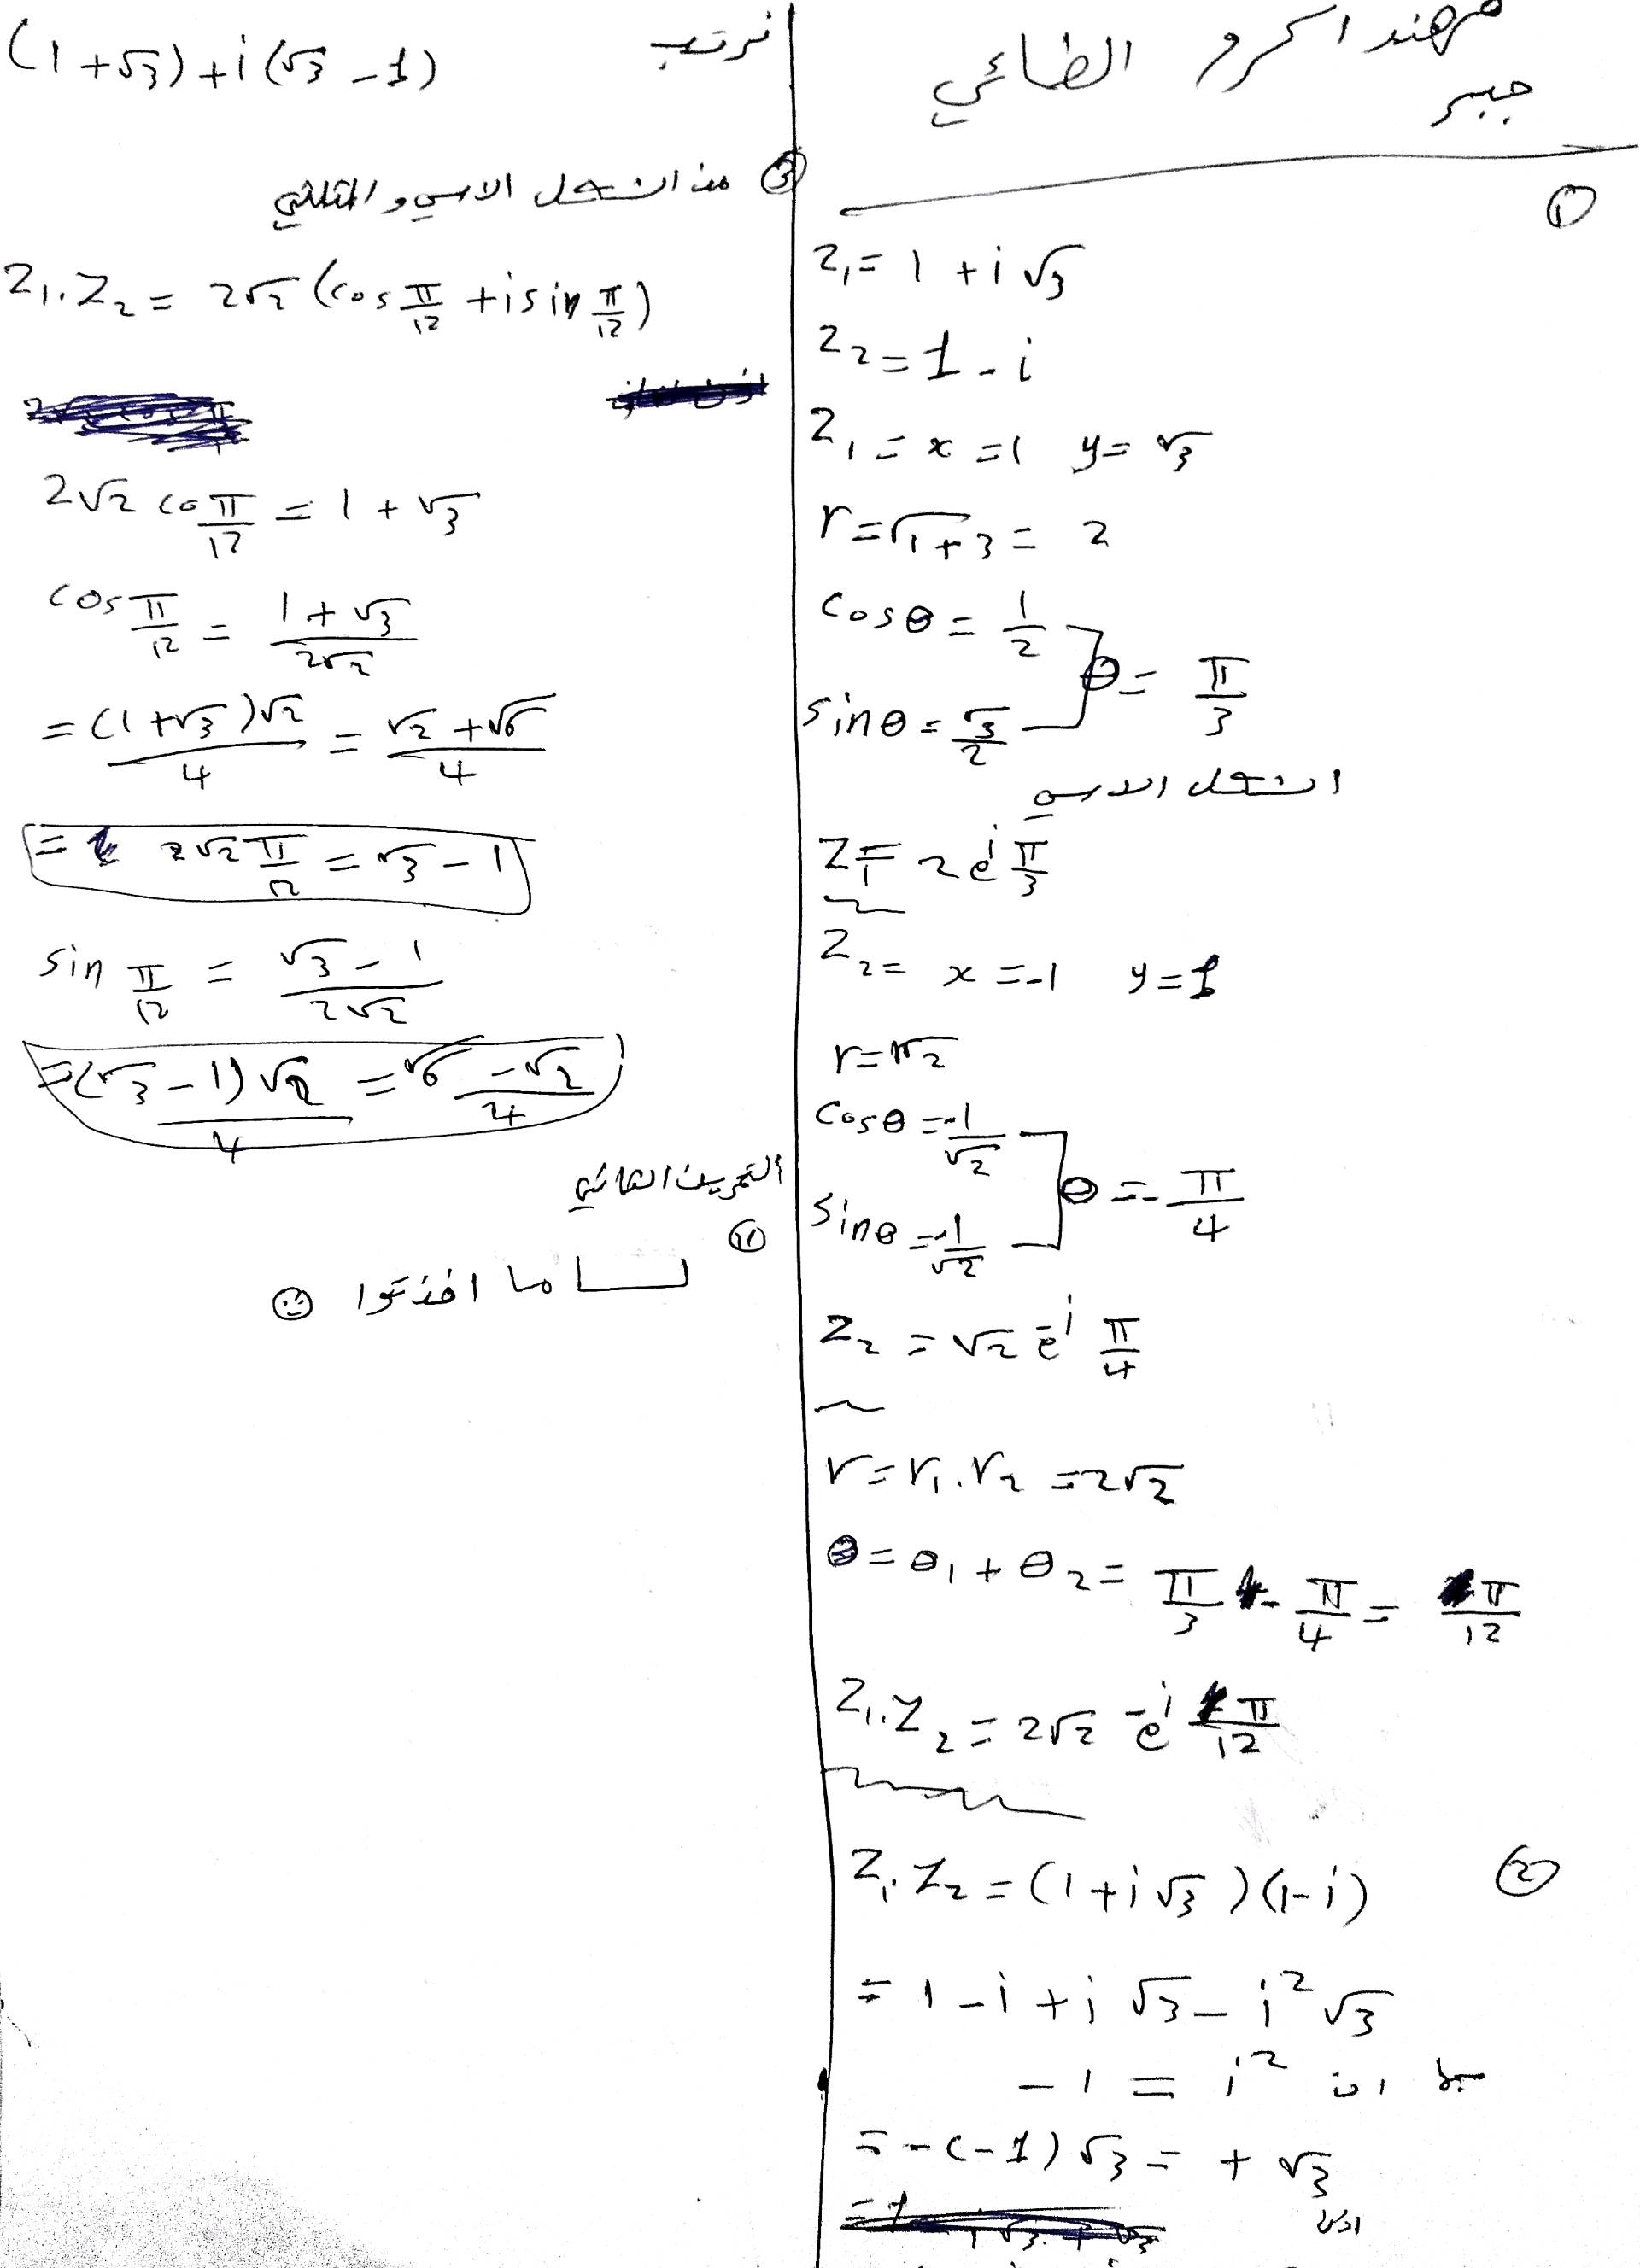 مهند اكرم الطائي
جبر
①
z₁ = 1 + i√3
z₂ = 1 - i
z₁ = x = 1 y = √3
r = √1+3 = 2
cosθ = 1/2
θ = π/3
sinθ = √3/2
الشكل الاسي
z₁ = 2e^i π/3
z₂ = x = -1 y = 1
r = √2
cosθ = -1/√2
θ = -π/4
sinθ = -1/√2
z₂ = √2 e^-i π/4
r = r₁.r₂ = 2√2
θ = θ₁ + θ₂ = π/3 - π/4 = π/12
z₁.z₂ = 2√2 -e^i π/12
②
z₁.z₂ = (1 + i√3)(1-i)
= 1 - i + i√3 - i²√3
بما ان i² = -1
= -(-1)√3 = +√3
اذن
نرتب
(1+√3) + i(√3 - 1)
③ من الشكل الاسي و المثلثي
z₁.z₂ = 2√2 (cos π/12 + i sin π/12)
2√2 co π/12 = 1 + √3
cos π/12 = 1+√3/2√2
= (1+√3)√2/4 = √2+√6/4
= 2√2 π/12 = √3 - 1
sin π/12 = √3-1/2√2
= (√3-1)√2/4 = √6-√2/4
التمرين الثاني
①
لسا ما اخذتوا